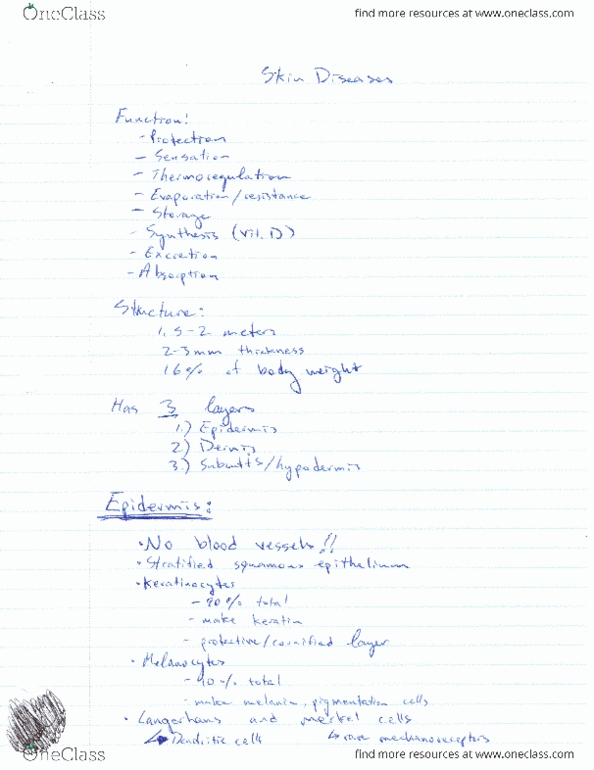 OneClass
find more resources at www.oneclass.com
Skin Diseases
Function:
- Protection
- Sensation
- Thermoregulation
- Evaporation/resistance
- Storage
- Synthesis (vit. D)
- Excretion
- Absorption
Structure:
1.5-2 meters
2-3mm thickness
16% of body weight
Has 3 layers
1.) Epidermis
2) Dermis
3.) Subcutis/hypodermis
Epidermis:
• No blood vessels!!
• Stratified squamous epithelium
• Keratinocytes
- 90% total
- make keratin
- protective/cornified layer
• Melanocytes
- 10% total
- make melanin, pigmentation cells
• Langerhans and merkel cells
↳ Dendritic cells ↳ rare mechanoreceptors
OneClass
find more resources at www.oneclass.com